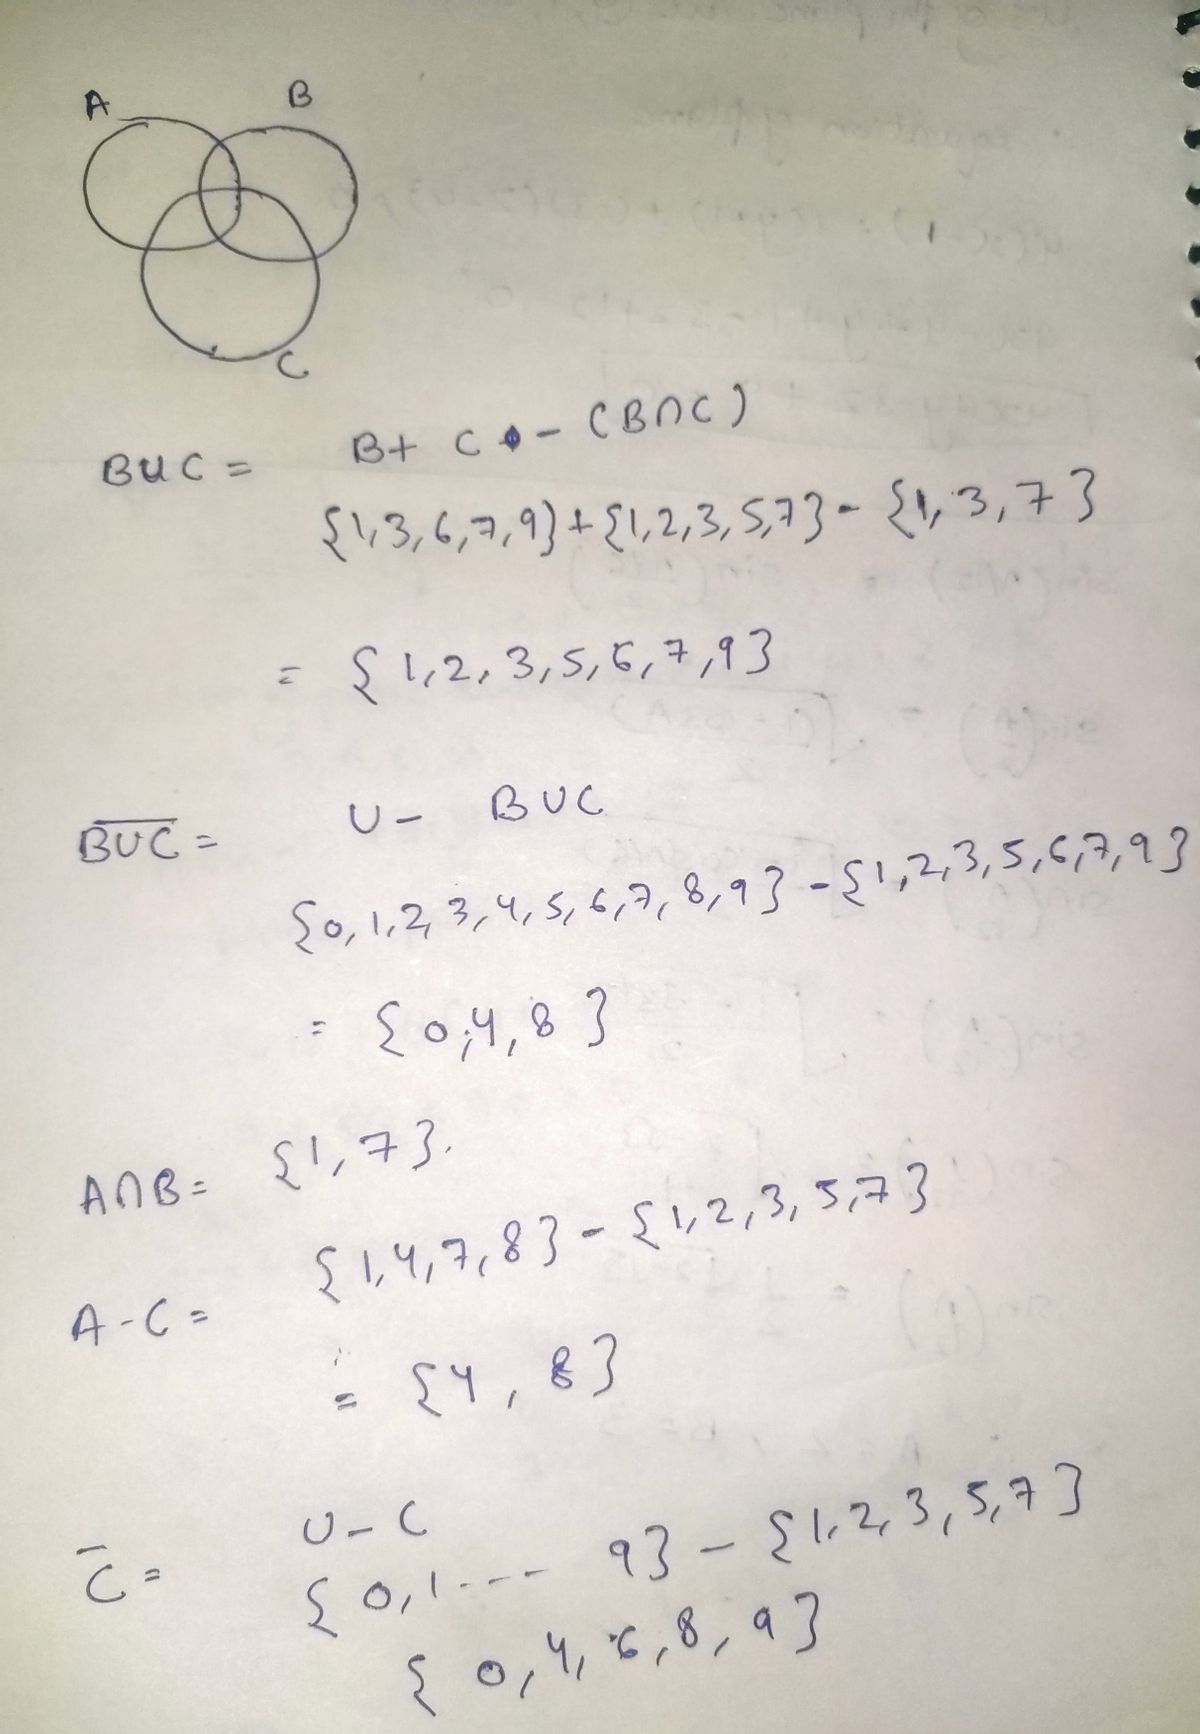 A B
C
BUC = B+ C - (B∩C)
{1,3,6,7,9}+{1,2,3,5,7}- {1,3,7}
= {1,2,3,5,6,7,9}
B̅U̅C̅ = U - BUC
{0,1,2,3,4,5,6,7,8,9} -{1,2,3,5,6,7,9}
= {0,4,8}
A∩B = {1,7}.
A-C = {1,4,7,8} - {1,2,3,5,7}
= {4,8}
C̅ = U-C
{0,1.--- 9} - {1,2,3,5,7}
{0,4,6,8,9}